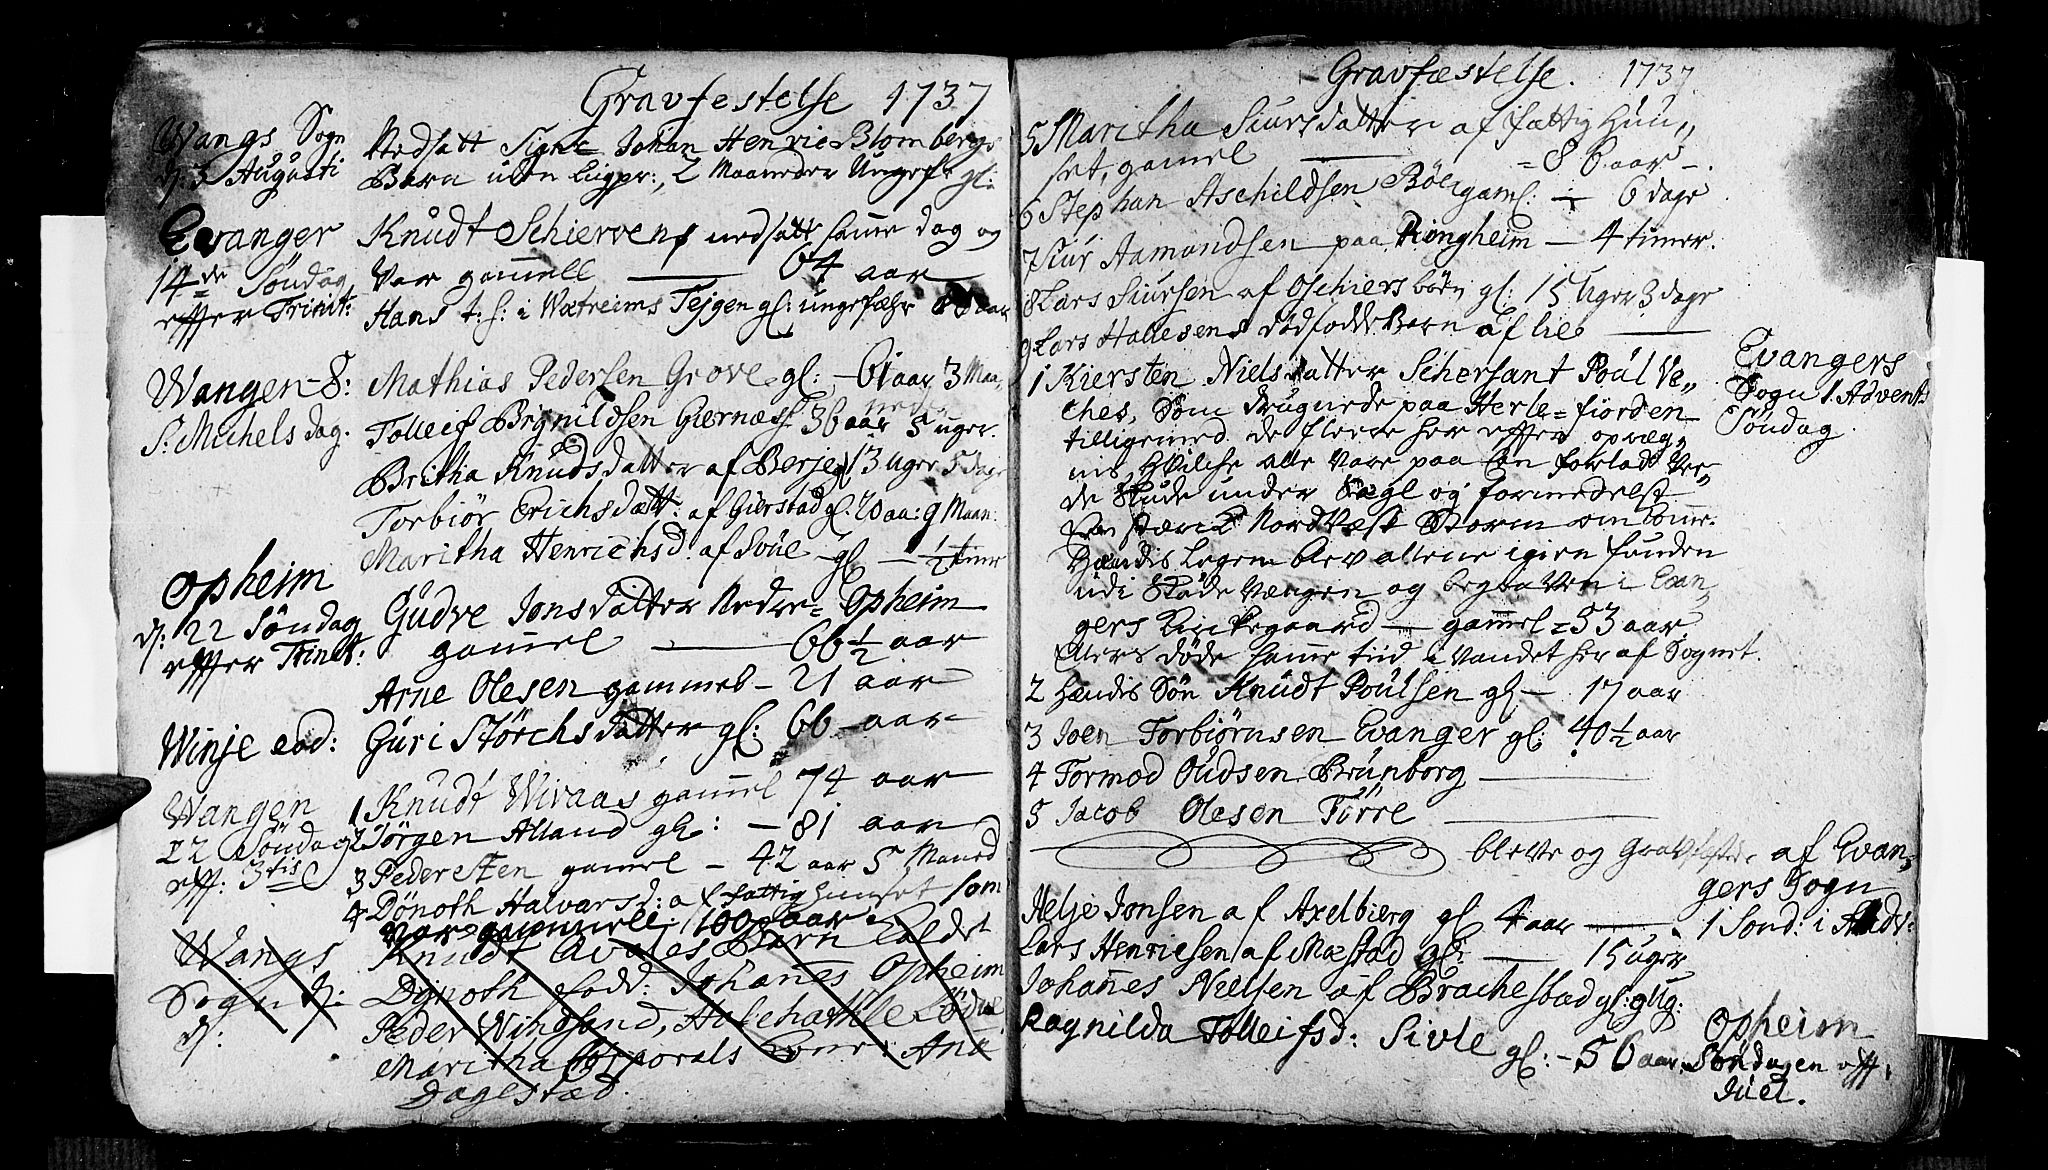 Gravfestelse 1737
Wangs Sogn
d: 3 Augusti
Nedsatt Sign: Johan Henric Blombergs
Barn uden Liigpr:, 2 Maaneder Ungef: gl:
Evanger
14de Söndag
effter Trinit:
Knudt Schierven nedsatt samme dag og
Var gamell 64 aar
Hans t: h: i Wætreims Tejgen gl: ungefæhr aar
Wangen 8:
St. Michels dag.
Mathias Pedersen Grove gl: 61 aar 3 Maa,,
neder
Tolleif Brignildsen Giernæs 36 aar 5 uger.
Britha Knudsdatter af Berje gl 13 uger 5 dage
Torbiör Erichsdatt: af Gierstad gl: 20 aa: 9 Maan:
Maritha Henrichsd: af Svöe gl ½ time
Opheim
d: 22 Söndag
effter Trinit:
Gudve Jonsdatter Nedre = Opheim
gamel 66 ½ aar
Arne Olesen gammel - 21 aar
Winje eod:
Guri Störchsdatter gl: 66 aar
Wangen
22 Söndag
eff: 3tis
1 Knudt Wivaas gamel 74 aar
2 Jörgen Alland gl: - 81 aar
3 Peder Sten gamel - 42 aar 5 Maaned
4 Dönoth Halvarsd: af fattighuuset som
Var gammell 100 aar.
Wangs
Sogn d:
d:
Knudt Barn Kaldet
Dynoth fodd: Johannes Opheim
Peder Windsand,
Maritha Corporals Kone: Ana
Dagestad.
Gravfæstelse. 1737
5 Maritha Siursdatter af fattig Huu,,
set, gamel = 86 aar -
6 Stephan Aschildsen Böe gaml: - 6 dage
7 Siur Aamondsen paa Ringheim - 4 timer.
8 Lars Siursen af Oschiersbörn gl: 15 Uger 3 dage
9 Lars Hallesens dödfödde Barn af Lie
Evangers
Sogn 1. Advents
Söndag.
1 Kiersten Nielsdatter Schersant Poul Ve,,
ches, Som drugnede paa Herle = fiorden
tilligemed de fleere her effter opræg,,
nis, Hvilche alle Vare paa en forlad Ver,,
de Skude under Segl og formedelst
en stærck Nordvest Storm om
Hændis Legem blev allene igien funden
udi Skude Vængen og begraven i Evan,,
gers Kirckegaard - gammel = 53 aar
Ellers döde samme tiid i Vandet her af Sognet.
2 Hændis Sön Knudt Poulsen gl - 17 aar
3 Joen Torbiörnsen Evanger gl: 40 ½ aar
4 Tormod Oudsen Brunborg
5 Jacob Olesen Törre
bleve og Gravfester af Evan,,
gers Sogn
1 Sönd: i Adv:
Helje Jonsen af Axelbierg gl 4 aar
Lars Henricsen af Mæstad gl: 15 uger
Johannes Nielsen af Brachestad gl: 9 Ug:
Ragnilda Tolleifsd: Sivle gl: - 56 aar
Opheim
Söndagen eff,
Juel.